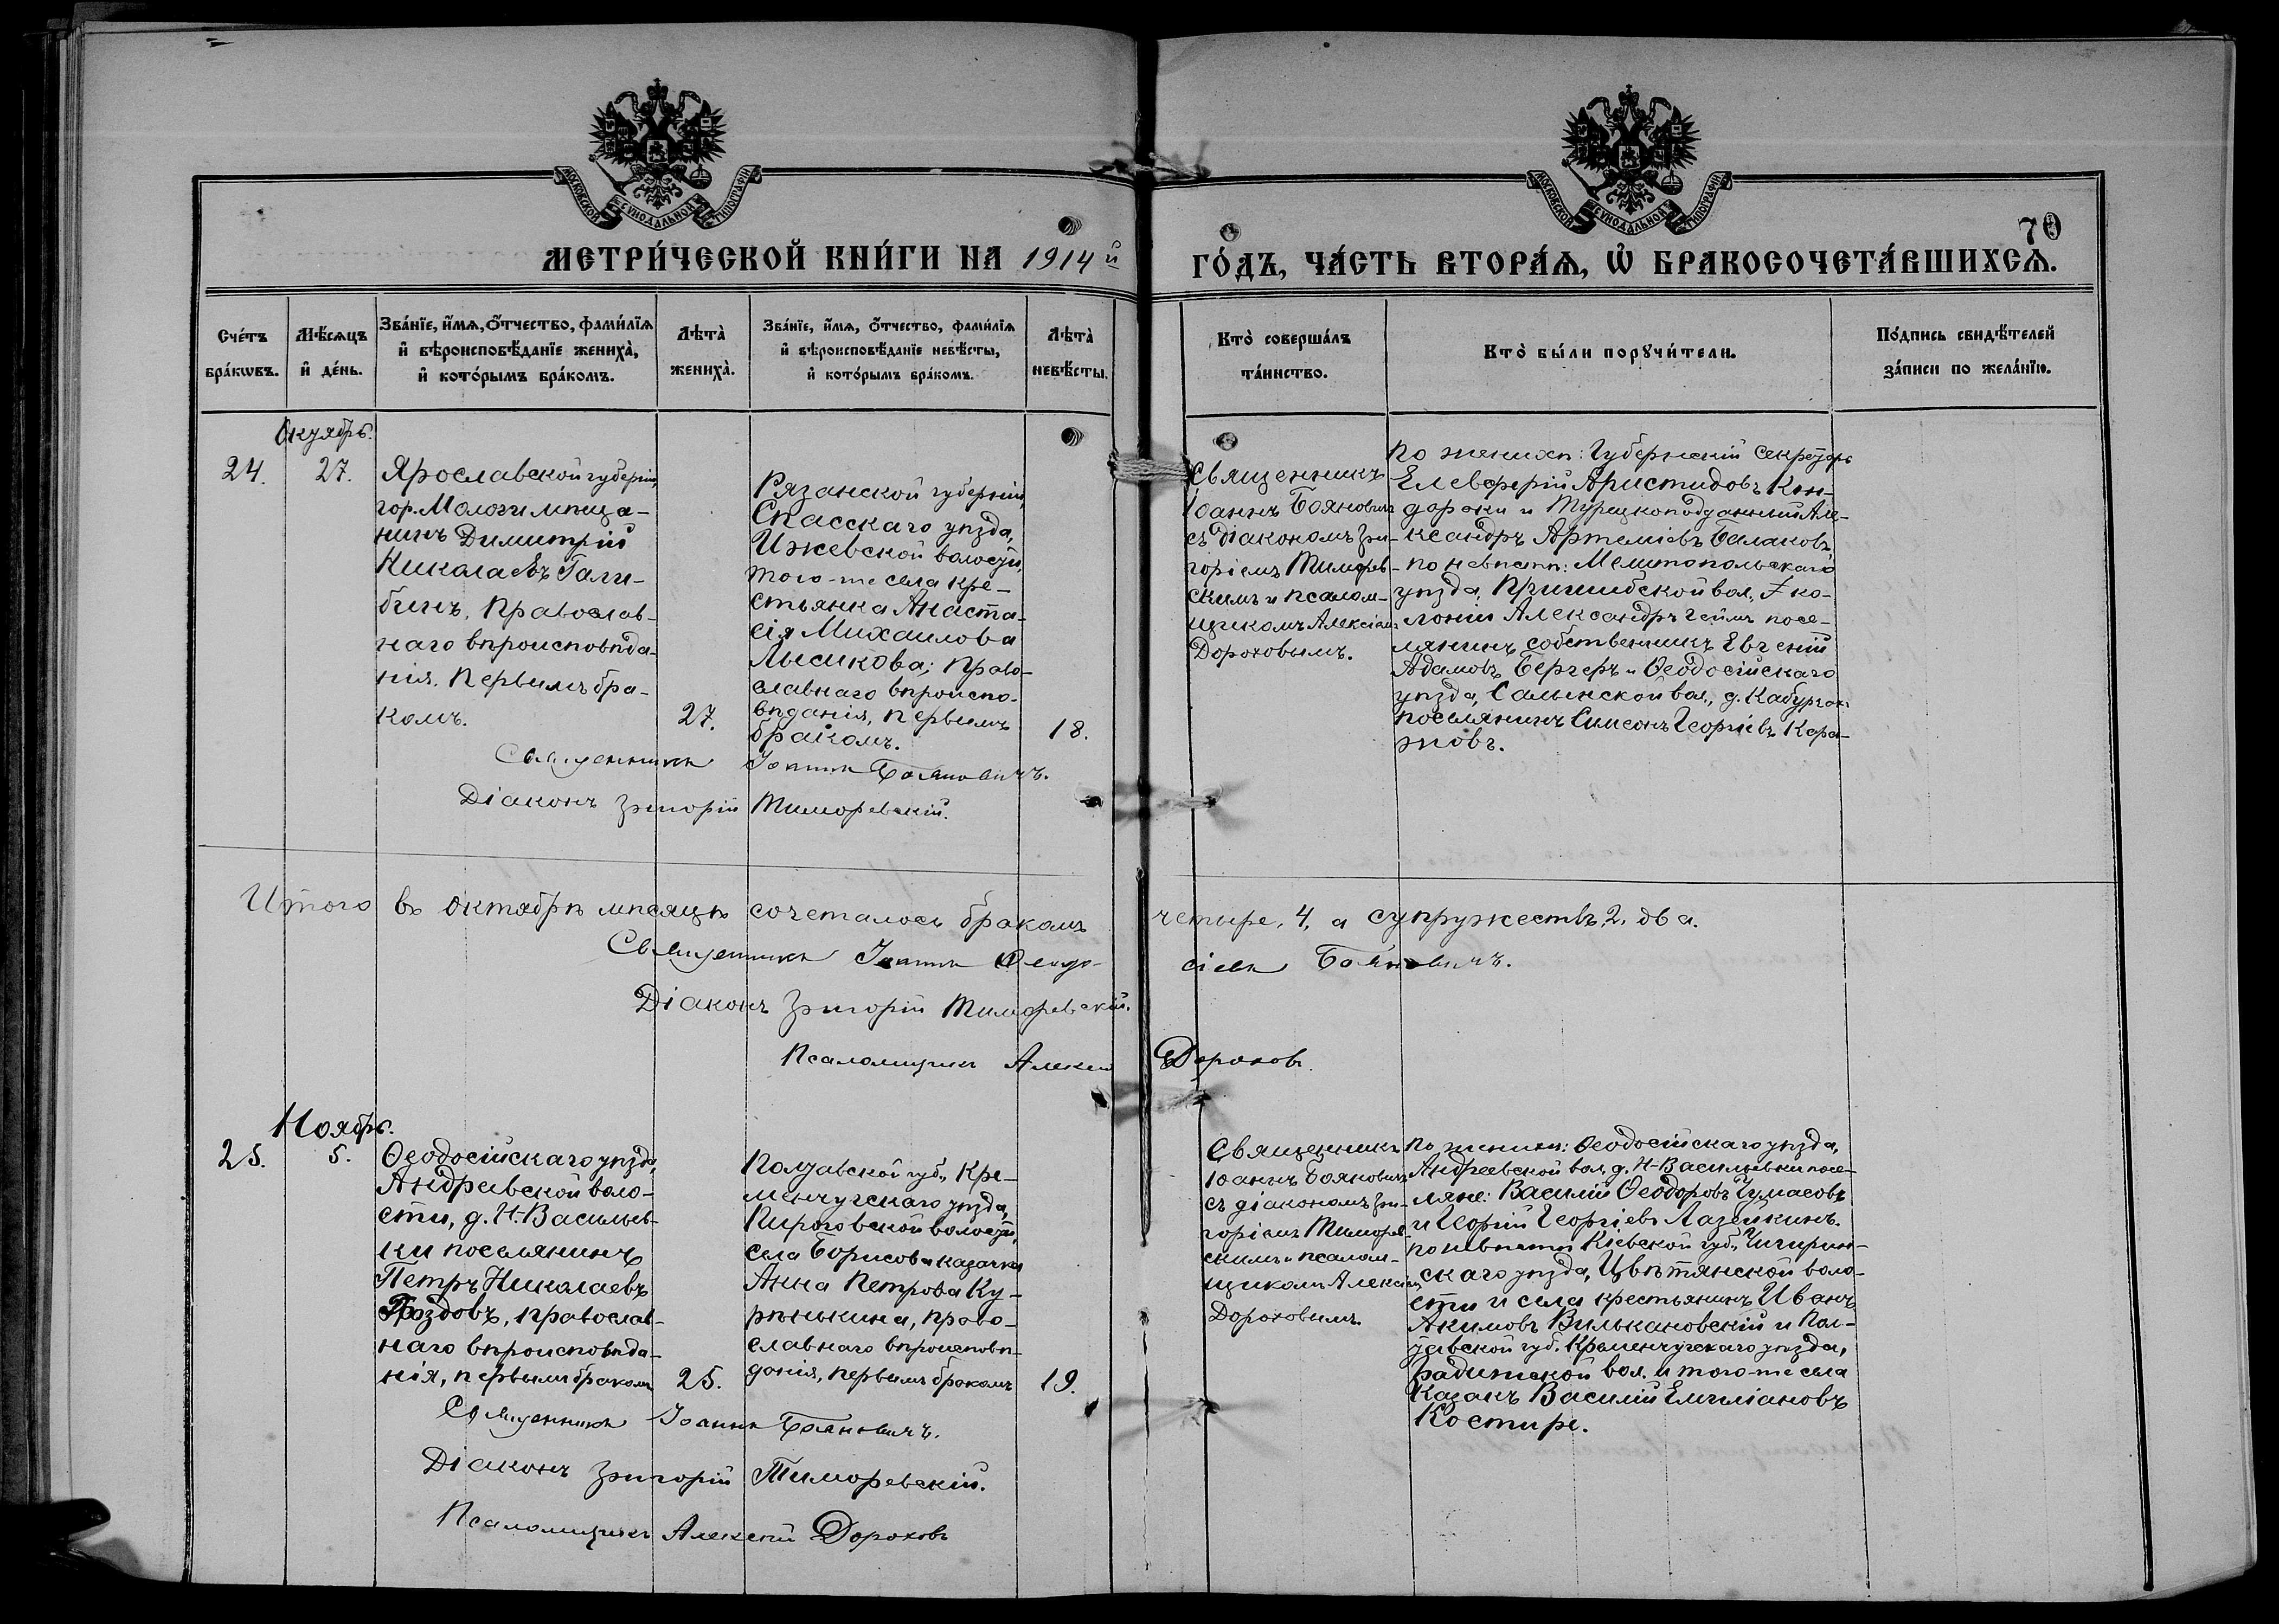 МОСКОВСКОЙ СѴНОДАЛЬНОЙ ТИПОГРАФІИ
МОСКОВСКОЙ СѴНОДАЛЬНОЙ ТИПОГРАФІИ
70
МЕТРИ́ЧЕСКОЙ КНИ́ГИ НА 1914й
ГО́ДЪ, ЧА́СТЬ ВТОРА́Ѧ, Ѽ БРАКОСОЧЕТА́ВШИХСѦ.
Сче́тъ
бра́кωвъ.
Мѣ́сѧцъ
и҆ де́нь.
Зва́нїе, и҆́мѧ, ѻ҆́тчество, фами́лїѧ
и҆ вѣроисповѣ́данїе жениха̀,
и҆ кото́рымъ бра́комъ.
Лѣта̀
жениха̀.
Зва́нїе, и҆́мѧ, ѻ҆́тчество, фами́лїѧ
и҆ вѣроисповѣ́данїе невѣ́сты,
и҆ кото́рымъ бра́комъ.
Лѣта̀
невѣ́сты.
Кто̀ соверша́лъ
та́инство.
Кто̀ бы́ли порꙋчи́тели.
По́дпись свидѣ́телей
за́писи по жела́нїю.
Октябрь.
24.
27.
Ярославской губерніи,
гор. Мологи мѣща-
нинъ Димитрій
Николаевъ Гали-
бинъ, православ-
наго вѣроисповѣда-
нія. Первымъ бра-
комъ.
27.
Рязанской губерніи,
Спасскаго уѣзда,
Ижевской волости,
того-же села кре-
стьянка Анаста-
сія Михаилова
Лысикова; право-
славнаго вѣроиспо-
вѣданія, первымъ
бракомъ.
18.
Священникъ
Іоаннъ Бояновичъ
съ діакономъ Гри-
горіемъ Тиморев-
скимъ и псалом-
щикомъ Алексіемъ
Дороховымъ.
По женихѣ: Губернскій секретарь
Елевферій Аристидовъ Кон-
дораки и Турецкоподданный Але-
ксандръ Артеміевъ Балаковъ,
по невѣстѣ: Мелитопольскаго
уѣзда, Пришибской вол., ко-
лоніи Александръ Геймъ посе-
лянинъ собственникъ Евгеній
Адамовъ Бергеръ и Ѳеодосійскаго
уѣзда, Салынской вол., д.
поселянинъ Симеонъ Георгіевъ Кара-
новъ.
Священникъ Іоаннъ Бояновичъ.
Діаконъ Григорій Тиморевскій.
Итого въ октябрѣ мѣсяцѣ сочеталось бракомъ четыре, 4, а супружествъ 2, два.
Священникъ Іоаннъ Ѳеодо- сіевъ Бояновичъ.
Діаконъ Григорій Тиморевскій.
Псаломщикъ Алексій Дороховъ.
Ноябрь.
25.
5.
Ѳеодосійскаго уѣзда,
Андреевской воло-
сти, д. Н.-Васильев-
ки поселянинъ
Петръ Николаевъ
православ-
наго вѣроисповѣда-
нія, первымъ бракомъ
25.
Полтавской губ., Кре-
менчугскаго уѣзда,
Пироговской волости,
села Борисовки казачка
Анна Петрова Ку-
рѣнькина, право-
славнаго вѣроисповѣ-
данія, первымъ бракомъ
19.
Священникъ
Іоаннъ Бояновичъ
съ діакономъ Гри-
горіемъ Тиморев-
скимъ и псалом-
щикомъ Алексіемъ
Дороховымъ
По женихѣ: Ѳеодосійскаго уѣзда,
Андреевской вол., д. Н-Васильевки посе-
ляне: Василій Ѳеодоровъ Чумасовъ
и Георгій Георгіевъ Лазейкинъ.
по невѣстѣ Кіевской губ., Чигирин-
скаго уѣзда, Цвѣтянской воло-
сти и села крестьянинъ Иванъ
Акимовъ Вилькановскій и Пол-
тавской губ. Кременчугскаго уѣзда,
вол. и того-же села
казакъ Василій Емиліановъ
Костыре.
Священникъ Іоаннъ Бояновичъ.
Діаконъ Григорій Тиморевскій.
Псаломщикъ Алексій Дороховъ